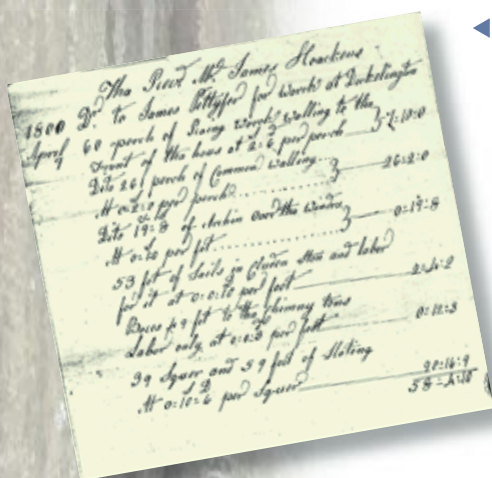 The Revd Mr James Hoackens
1800 Dr to James Pettyfer for Worck at Duckelington
April 60 perch of Raing Worck Walling to the
Front of the hous at 2=6 per perch 7=10=0
Dito 261 perch of Common Walling
At 0=2=0 per perch 26=2=0
Dito 19=8 of Archin Over the Windos
At 0=1=0 per fot 0=19=8
53 fot of Soils in Ston and labor
for it at 0=0=10 per foot 2=4=2
49 fot to the Chimny tons
Labor only at 0=0=3 per fott 0=12=3
39 Squer and 59 feet of Slating
At 0=10=6 per Squer 20=16=9
58=4=10